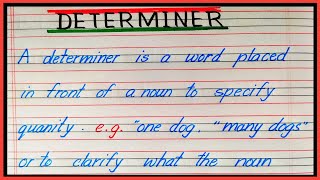 DETERMINER
A determiner is a word placed
in front of a noun to specify
quanity. e.g. "one dog, "many dogs"
or to clarify what the noun